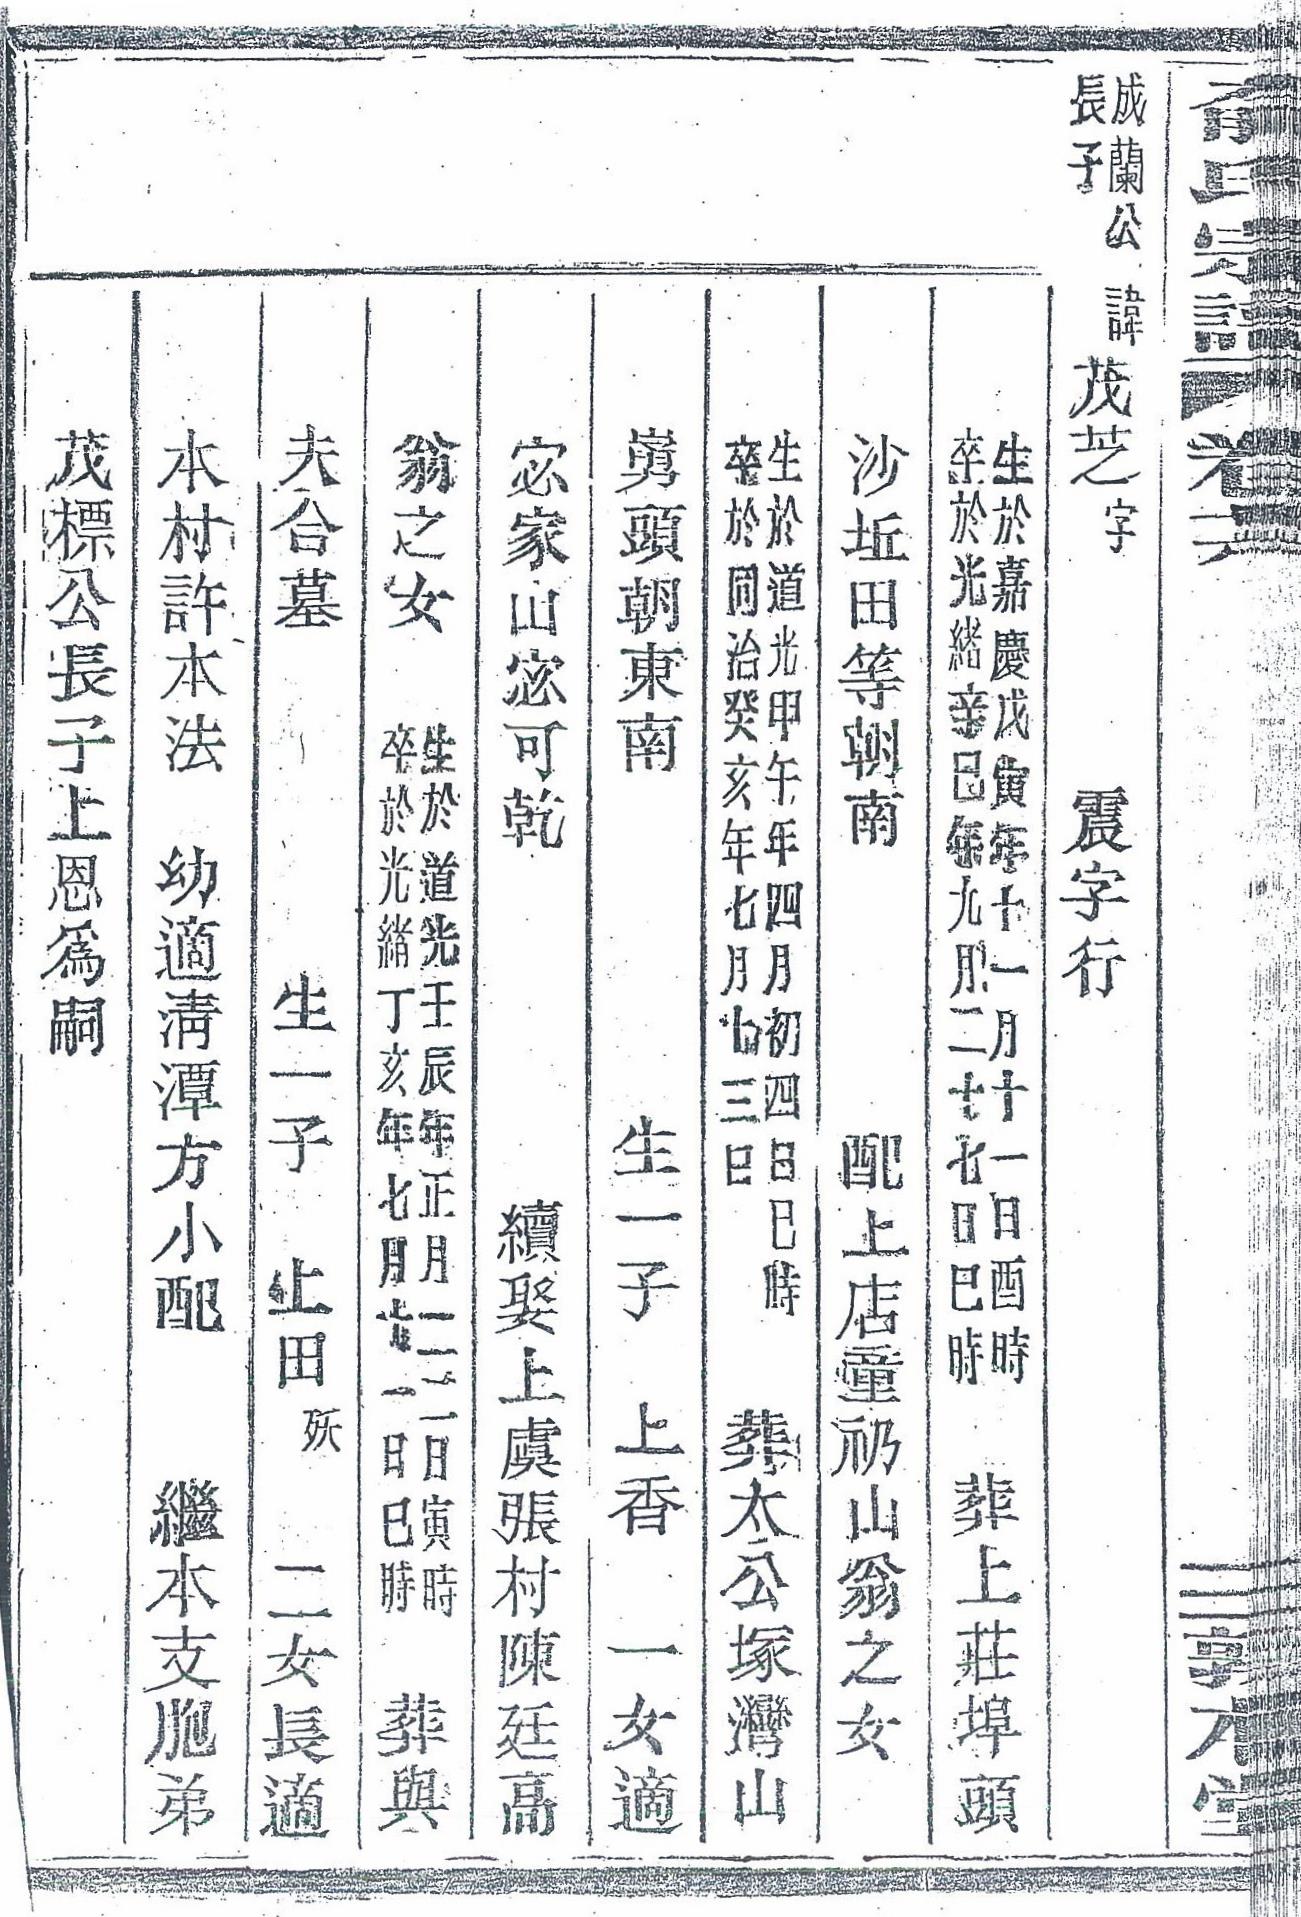 氏宗譜 卷六 三 敦本堂
成蘭公
長子
諱茂芝字 震字行
生於嘉慶戊寅年十一月十一日酉時
卒於光緒辛巳年九月二十七日巳時
葬上莊埠頭
沙坵田等朝南 配上店童礽山翁之女
生於道光甲午年四月初四日巳時
卒於同治癸亥年七月 三日
葬太公塚灣山
嶴頭朝東南 生一子 上香 一女適
宓家山宓可乾 續娶上虞張村陳廷高
翁之女
生於道光壬辰年正月二十二日寅時
卒於光緒丁亥年七月 一日巳時
葬與
夫合墓 生一子 上田 殀 二女長適
本村許本法 幼適清潭方小配 繼本支胞弟
茂標公長子上恩為嗣